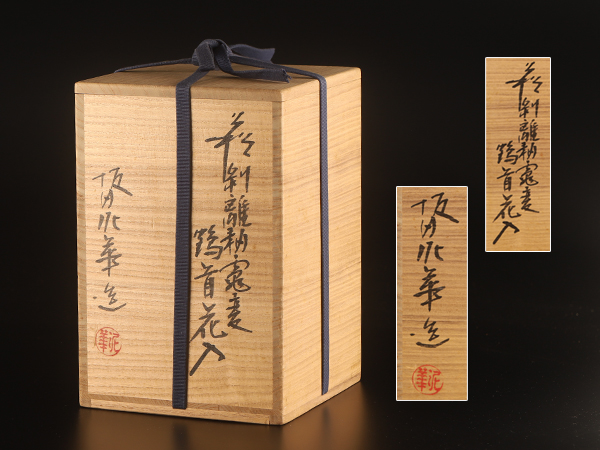 萩剥離釉窯変
鶴首花入
坂田泥華造
泥華
萩剥離釉窯変
鶴首花入
坂田泥華造
泥華